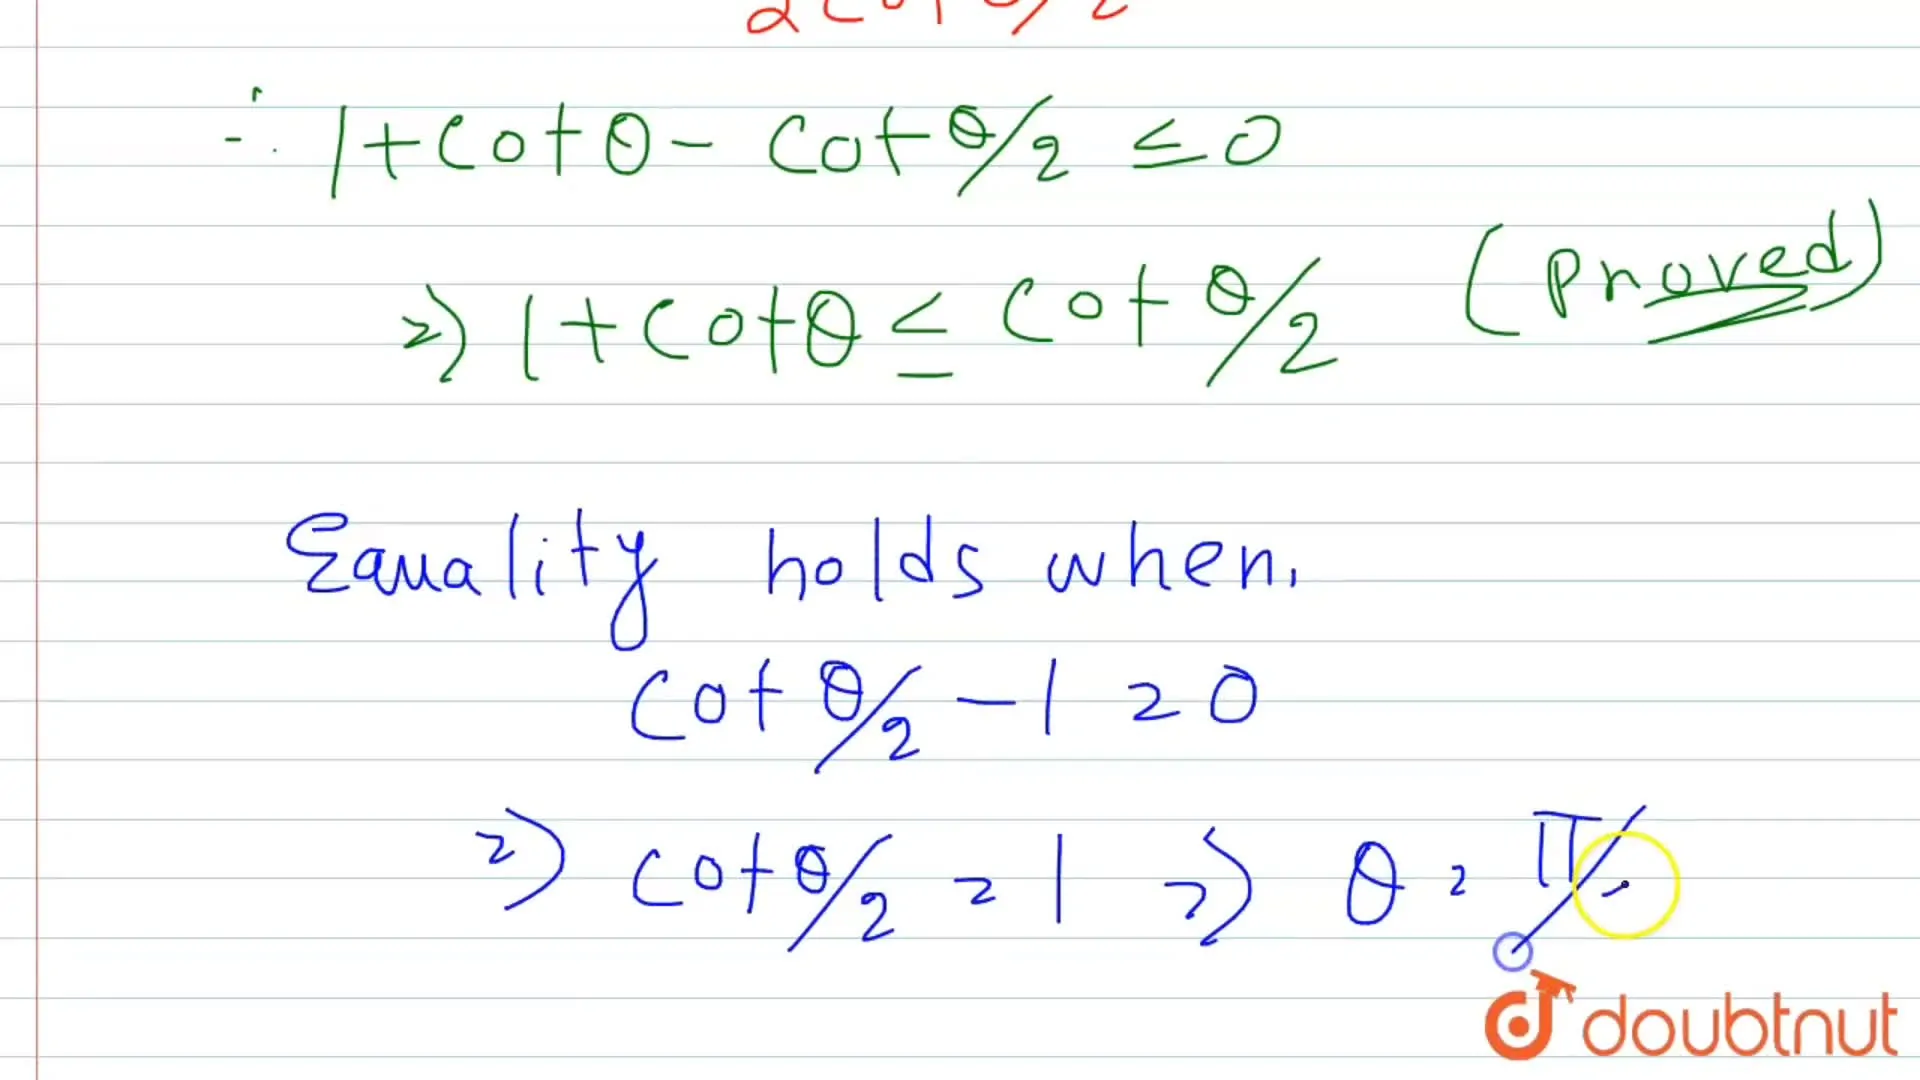 2 cot θ/2
∴ 1 + cot θ - cot θ/2 ≤ 0
⇒ 1 + cot θ ≤ cot θ/2 (proved)
Equality holds when,
cot θ/2 - 1 = 0
⇒ cot θ/2 = 1 ⇒ θ = π/
doubtnut